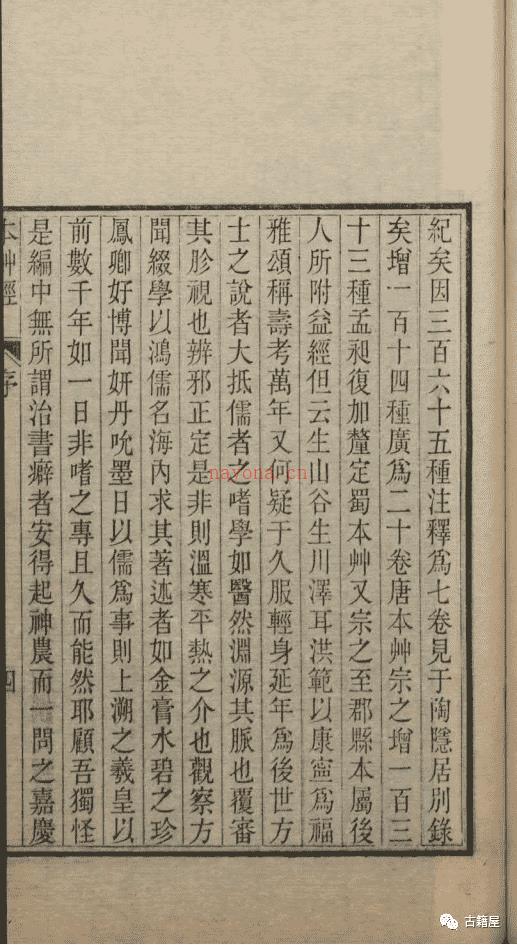 紀矣因三百六十五種注釋爲七卷見于陶隱居別錄
矣增一百十四種廣爲二十卷唐本艸宗之增一百三
十三種孟昶復加釐定蜀本艸又宗之至郡縣本屬後
人所附益經但云生山谷生川澤耳洪範以康寧爲福
雅頌稱壽考萬年又何疑于久服輕身延年爲後世方
士之說者大抵儒者之嗜學如醫然淵源其脈也覆審
其胗視也辨邪正定是非則溫寒平熱之介也觀察方
聞綴學以鴻儒名海內求其著述者如金膏水碧之珍
鳳卿好博聞姸丹吮墨日以儒爲事則上溯之羲皇以
前數千年如一日非嗜之專且久而能然耶顧吾獨怪
是編中無所謂治書癖者安得起神農而一問之嘉慶
本艸經
序
四
nayona.cn
古籍屋